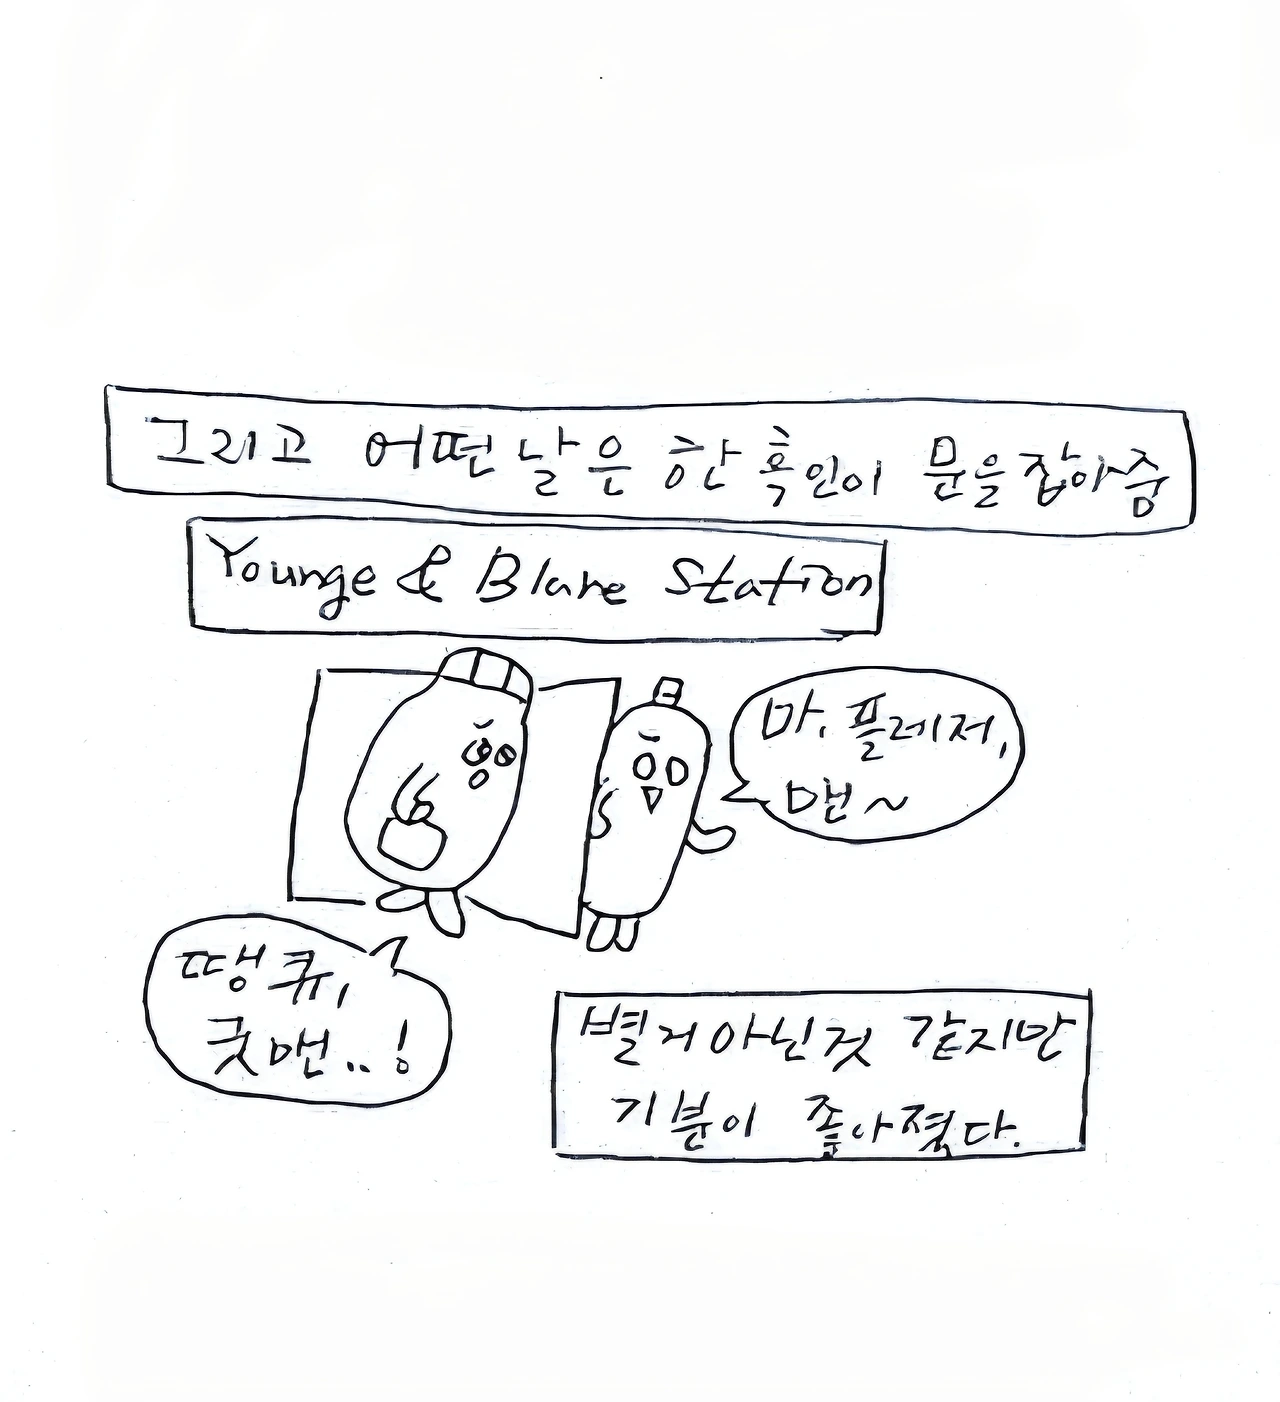 그리고 어떤 날은 한 흑인이 문을 잡아줌
Younge & Blare Station
마. 플레저,
맨~
땡큐,
굿맨..!
별거 아닌것 같지만
기분이 좋아졌다.